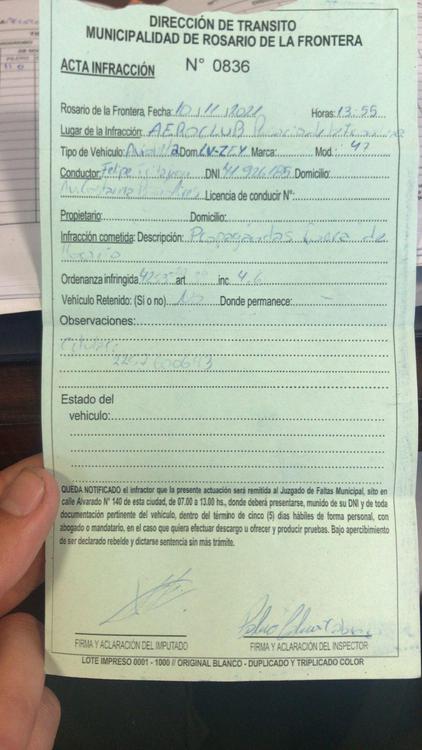 DIRECCIÓN DE TRANSITO
MUNICIPALIDAD DE ROSARIO DE LA FRONTERA
ACTA INFRACCIÓN N° 0836
Rosario de la Frontera, Fecha: 10/11/2021 Horas: 13:55
Lugar de la Infracción: AEROCLUB
Tipo de Vehículo: Dom. LV-ZEY Marca: Mod. 47
Conductor: Felipe DNI Domicilio:
Licencia de conducir N°:
Propietario: Domicilio:
Infracción cometida: Descripción: Propagandas fuera de
Ordenanza infringida art inc. 4.6
Vehículo Retenido: (Si o no) No Donde permanece:
Observaciones:
Estado del
vehículo:
QUEDA NOTIFICADO el infractor que la presente actuación será remitida al Juzgado de Faltas Municipal, sito en
calle Alvarado N° 140 de esta ciudad, de 07.00 a 13.00 hs., donde deberá presentarse, munido de su DNI y de toda
documentación pertinente del vehículo, dentro del término de cinco (5) días hábiles de forma personal, con
abogado o mandatario, en el caso que quiera efectuar descargo u ofrecer y producir pruebas. Bajo apercibimiento
de ser declarado rebelde y dictarse sentencia sin más trámite.
FIRMA Y ACLARACIÓN DEL IMPUTADO FIRMA Y ACLARACIÓN DEL INSPECTOR
LOTE IMPRESO 0001 - 1000 // ORIGINAL BLANCO - DUPLICADO Y TRIPLICADO COLOR